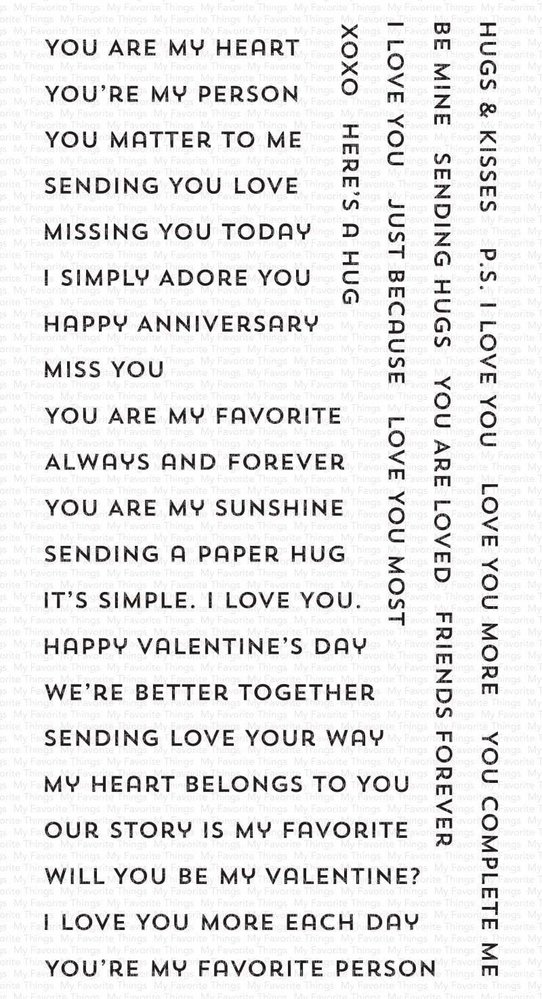 YOU ARE MY HEART
YOU'RE MY PERSON
YOU MATTER TO ME
SENDING YOU LOVE
MISSING YOU TODAY
I SIMPLY ADORE YOU
HAPPY ANNIVERSARY
MISS YOU
YOU ARE MY FAVORITE
ALWAYS AND FOREVER
YOU ARE MY SUNSHINE
SENDING A PAPER HUG
IT'S SIMPLE. I LOVE YOU.
HAPPY VALENTINE'S DAY
WE'RE BETTER TOGETHER
SENDING LOVE YOUR WAY
MY HEART BELONGS TO YOU
OUR STORY IS MY FAVORITE
WILL YOU BE MY VALENTINE?
I LOVE YOU MORE EACH DAY
YOU'RE MY FAVORITE PERSON
XOXO HERE'S A HUG
I LOVE YOU JUST BECAUSE LOVE YOU MOST
BE MINE SENDING HUGS YOU ARE LOVED FRIENDS FOREVER
HUGS & KISSES P.S. I LOVE YOU LOVE YOU MORE YOU COMPLETE ME
My Favorite Things